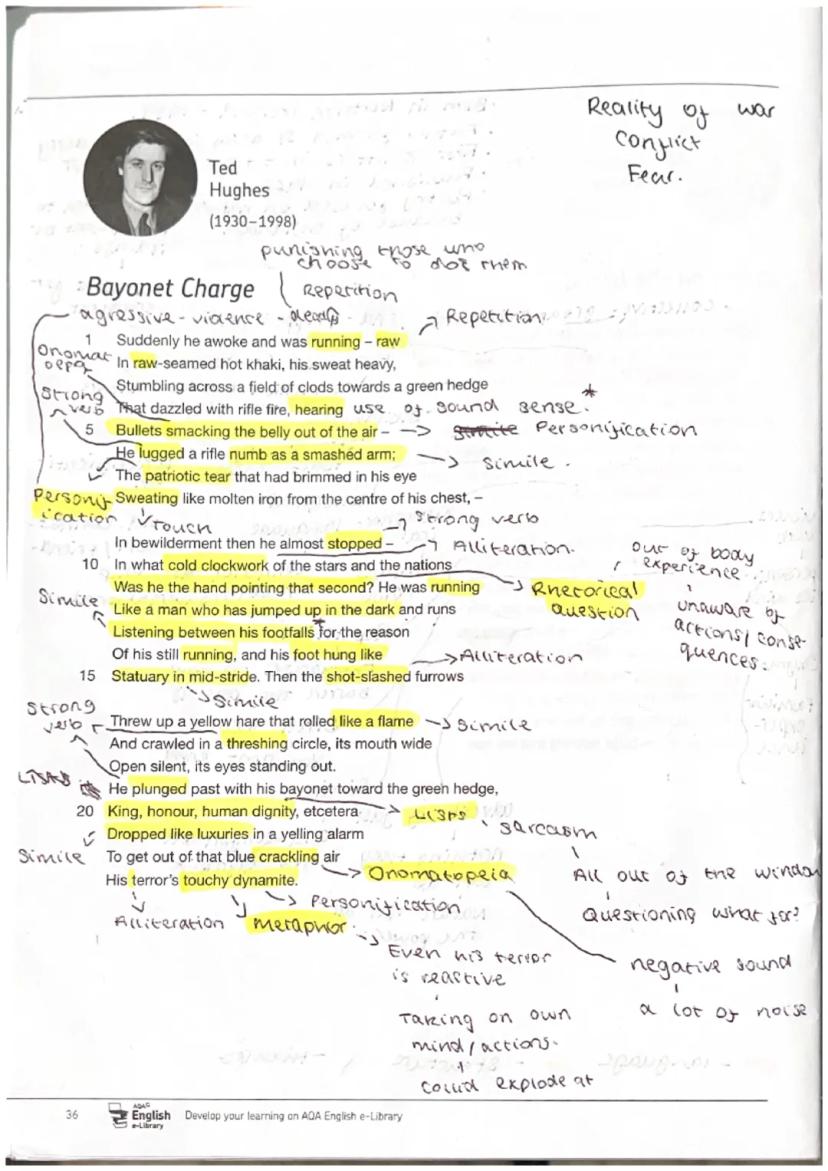 Reality of war
Conflict
Fear.
Ted
Hughes
(1930–1998)
punishing those who
choose to do them
Bayonet Charge
Repetition
agressive - violence - deadly
Repetition.
1 Suddenly he awoke and was running – raw
Onomat
oepa
In raw-seamed hot khaki, his sweat heavy,
Stumbling across a field of clods towards a green hedge
Strong
verb
That dazzled with rifle fire, hearing use of sound sense. *
5 Bullets smacking the belly out of the air – simile Personification
He lugged a rifle numb as a smashed arm; Simile.
The patriotic tear that had brimmed in his eye
Personif
ication
Sweating like molten iron from the centre of his chest, –
Touch
Strong verb
In bewilderment then he almost stopped – Alliteration.
10 In what cold clockwork of the stars and the nations
Was he the hand pointing that second? He was running
Rhetorical
question
out of body
experience.
unaware of
actions/conse-
quences.
Simile
Like a man who has jumped up in the dark and runs
Listening between his footfalls for the reason
Of his still running, and his foot hung like Alliteration
15 Statuary in mid-stride. Then the shot-slashed furrows
Simile
Strong
verb
Threw up a yellow hare that rolled like a flame Simile
And crawled in a threshing circle, its mouth wide
Open silent, its eyes standing out.
Lists
He plunged past with his bayonet toward the green hedge,
20 King, honour, human dignity, etcetera Lists
sarcasm
Dropped like luxuries in a yelling alarm
Simile
To get out of that blue crackling air
All out of the window
His terror's touchy dynamite.
Onomatopeia
Questioning what for?
Personification
Alliteration
Metaphor.
Even his terror
is reactive
negative sound
a lot of noise
Taking on own
mind/actions.
could explode at
36 AQA English e-Library Develop your learning on AQA English e-Library